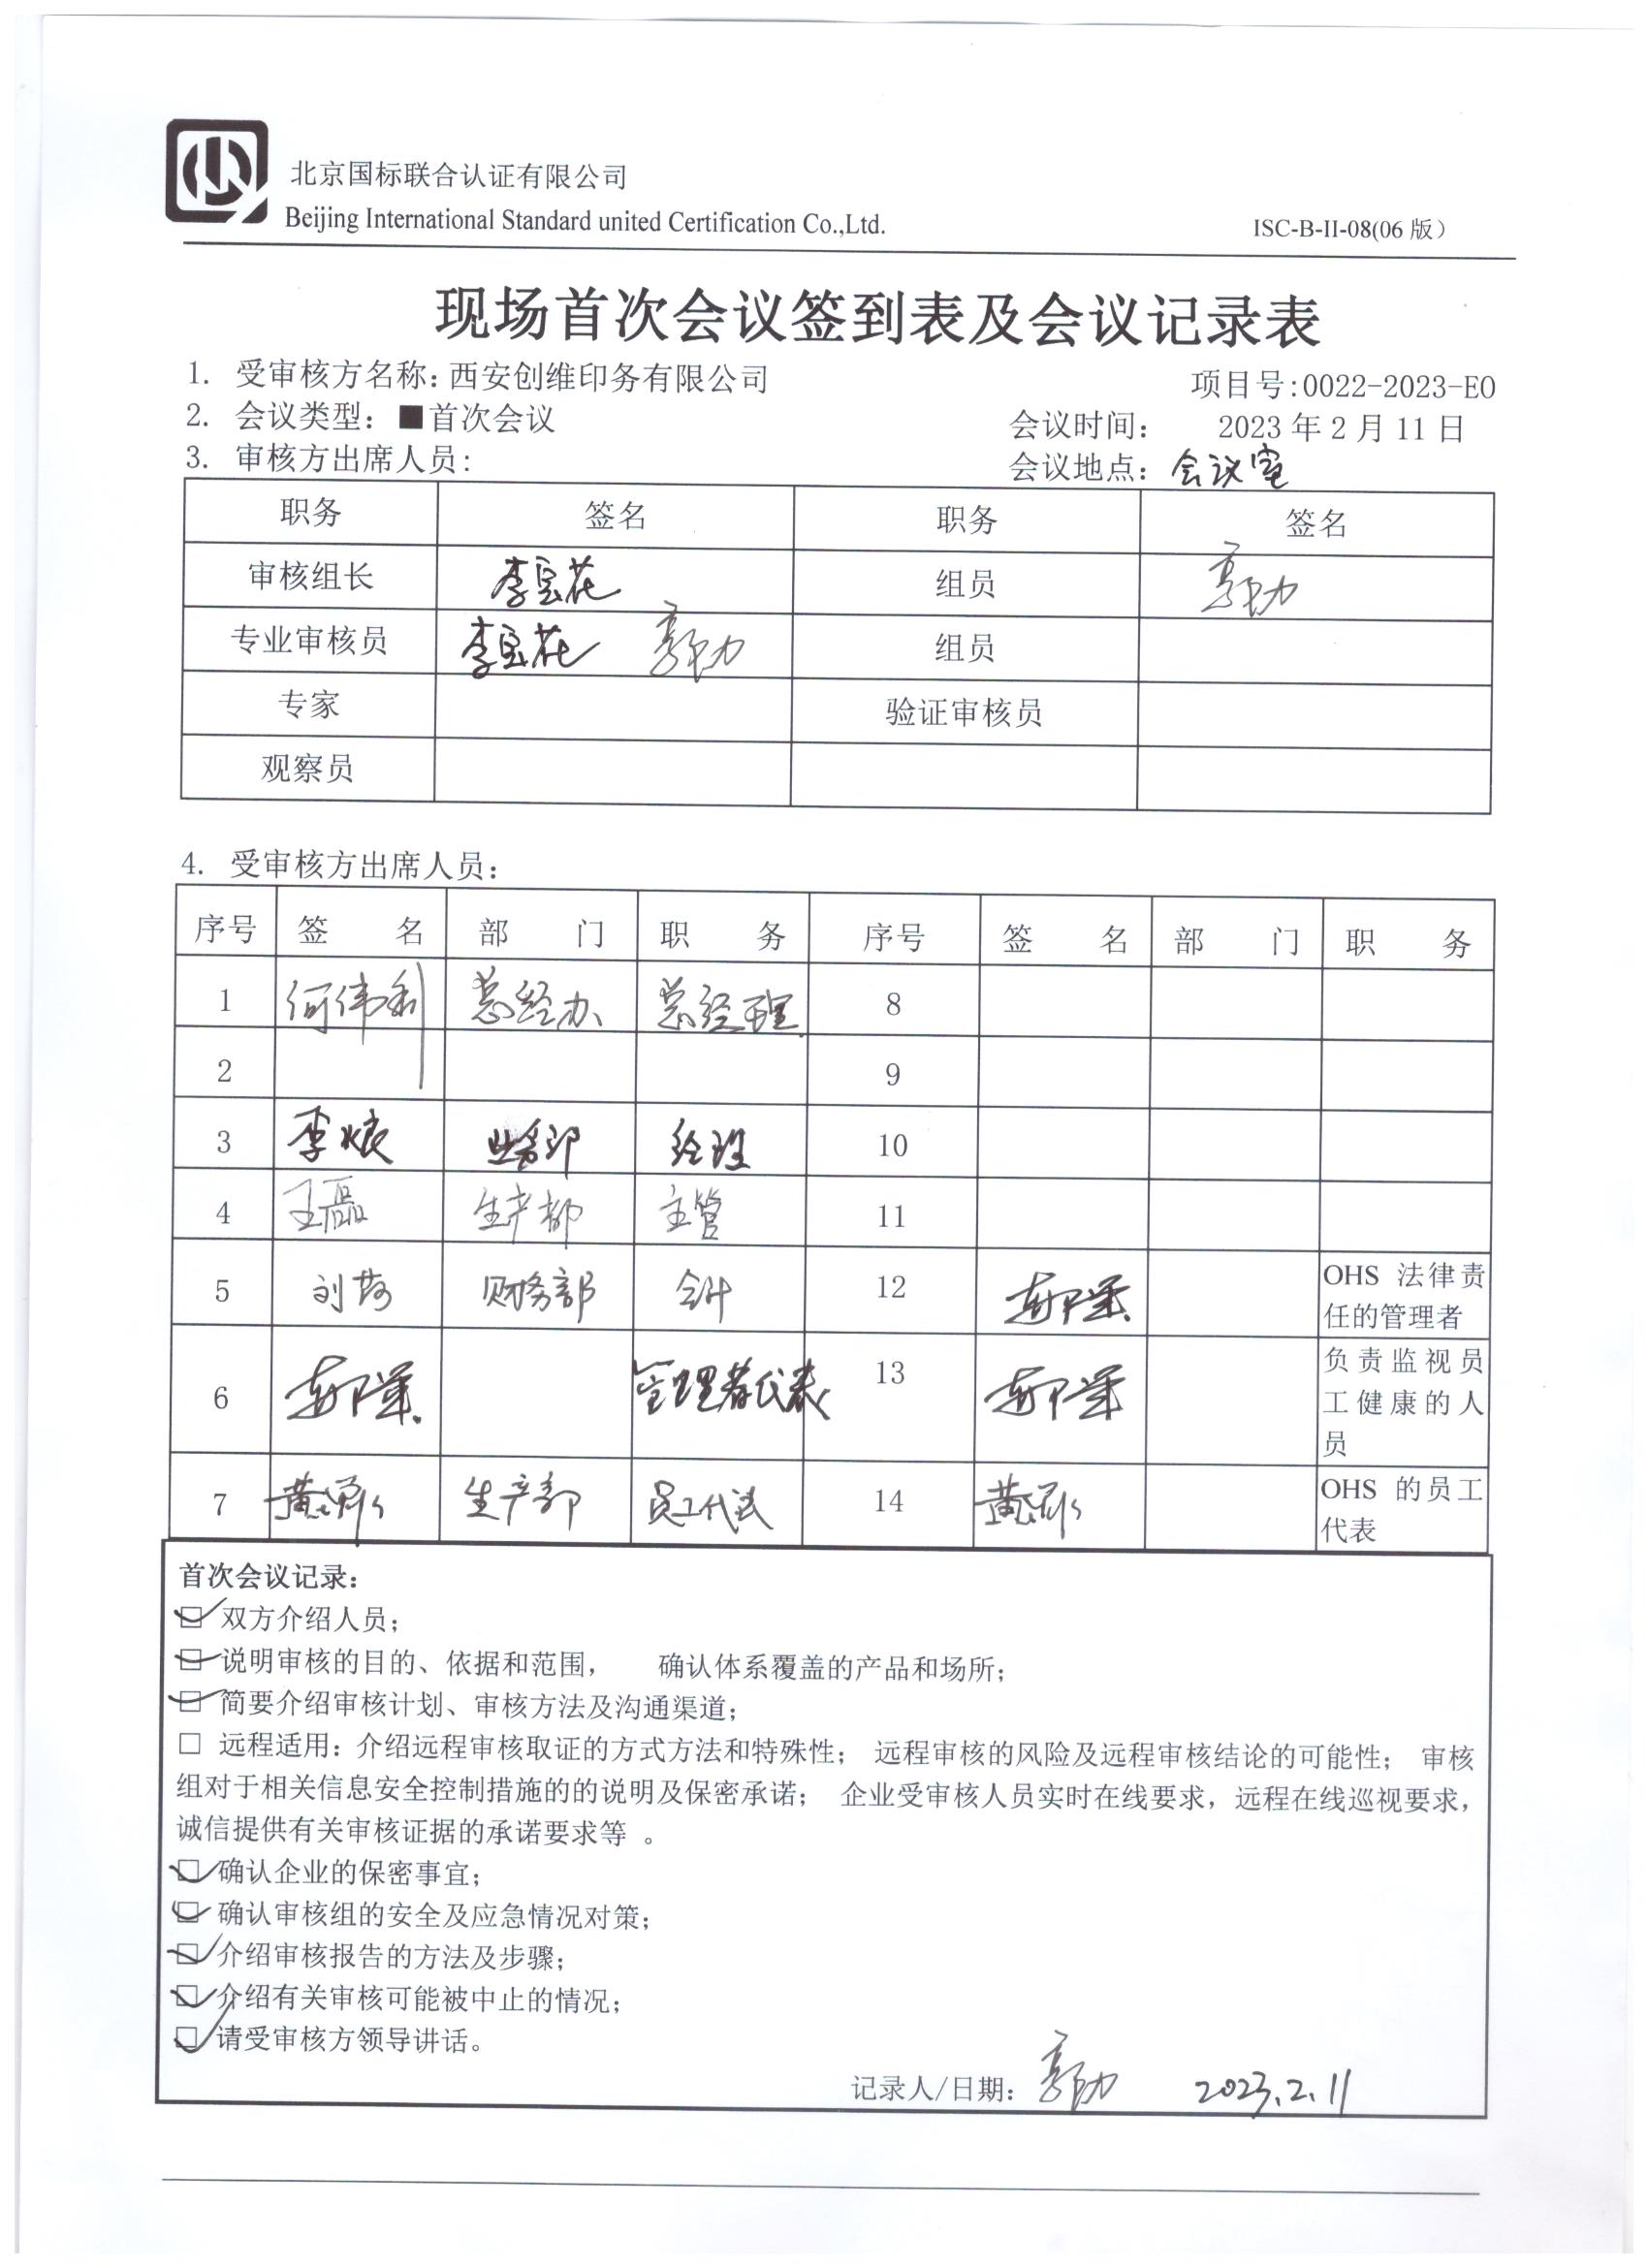 北京国标联合认证有限公司
Beijing International Standard united Certification Co.,Ltd.
ISC-B-II-08(06 版）
现场首次会议签到表及会议记录表
1. 受审核方名称：西安创维印务有限公司 项目号:0022-2023-EO
2. 会议类型：■首次会议 会议时间： 2023 年 2 月 11 日
3. 审核方出席人员： 会议地点：会议室
职务 签名 职务 签名
审核组长 李宝花 组员 郭力
专业审核员 李宝花 郭力 组员
专家 验证审核员
观察员
4. 受审核方出席人员：
序号 签 名 部 门 职 务 序号 签 名 部 门 职 务
1 何伟利 总经办 总经理 8
2 9
3 李 业务部 经理 10
4 王磊 生产部 主管 11
5 刘 财务部 会计 12 OHS 法律责
任的管理者
6 管理者代表 13 负责监视员
工健康的人
员
7 黄 生产部 员工代表 14 黄 OHS 的员工
代表
首次会议记录：
☑双方介绍人员；
☑说明审核的目的、依据和范围， 确认体系覆盖的产品和场所；
☑简要介绍审核计划、审核方法及沟通渠道；
□ 远程适用：介绍远程审核取证的方式方法和特殊性； 远程审核的风险及远程审核结论的可能性； 审核
组对于相关信息安全控制措施的的说明及保密承诺； 企业受审核人员实时在线要求，远程在线巡视要求，
诚信提供有关审核证据的承诺要求等 。
☑确认企业的保密事宜；
☑确认审核组的安全及应急情况对策；
☑介绍审核报告的方法及步骤；
☑介绍有关审核可能被中止的情况；
☑请受审核方领导讲话。
记录人/日期：郭力 2023.2.11